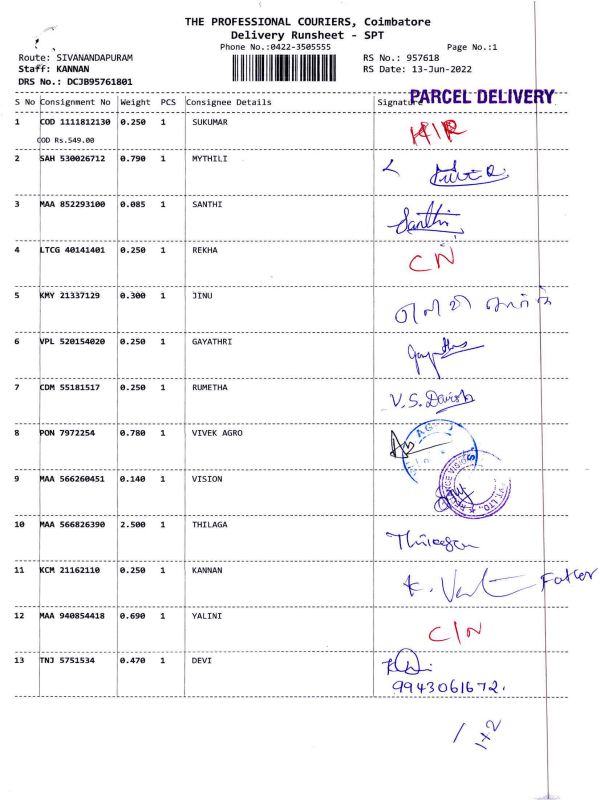 THE PROFESSIONAL COURIERS, Coimbatore
Delivery Runsheet - SPT
Phone No.:0422-3505555 Page No.:1
Route: SIVANANDAPURAM RS No.: 957618
Staff: KANNAN RS Date: 13-Jun-2022
DRS No.: DCJB95761801
PARCEL DELIVERY
S No Consignment No Weight PCS Consignee Details Signature
1 COD 1111812130 0.250 1 SUKUMAR
COD Rs.549.00
2 SAH 530026712 0.790 1 MYTHILI
3 MAA 852293100 0.085 1 SANTHI Santhi
4 LTCG 40141401 0.250 1 REKHA CN
5 KMY 21337129 0.300 1 JINU
6 VPL 520154020 0.250 1 GAYATHRI
7 CDM 55181517 0.250 1 RUMETHA V.S.
8 PON 7972254 0.780 1 VIVEK AGRO
9 MAA 566260451 0.140 1 VISION
10 MAA 566826390 2.500 1 THILAGA
11 KCM 21162110 0.250 1 KANNAN K. Father
12 MAA 940854418 0.690 1 YALINI C/N
13 TNJ 5751534 0.470 1 DEVI
9943061672.